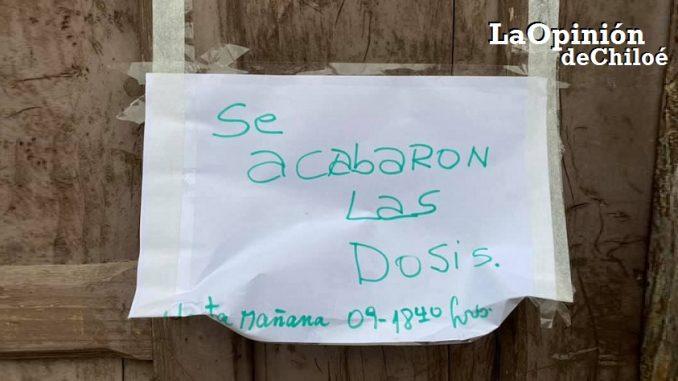 LaOpinión
deChiloé
Se
acabaRON
Las
Dosis.
Mañana 09-1840 hrs.